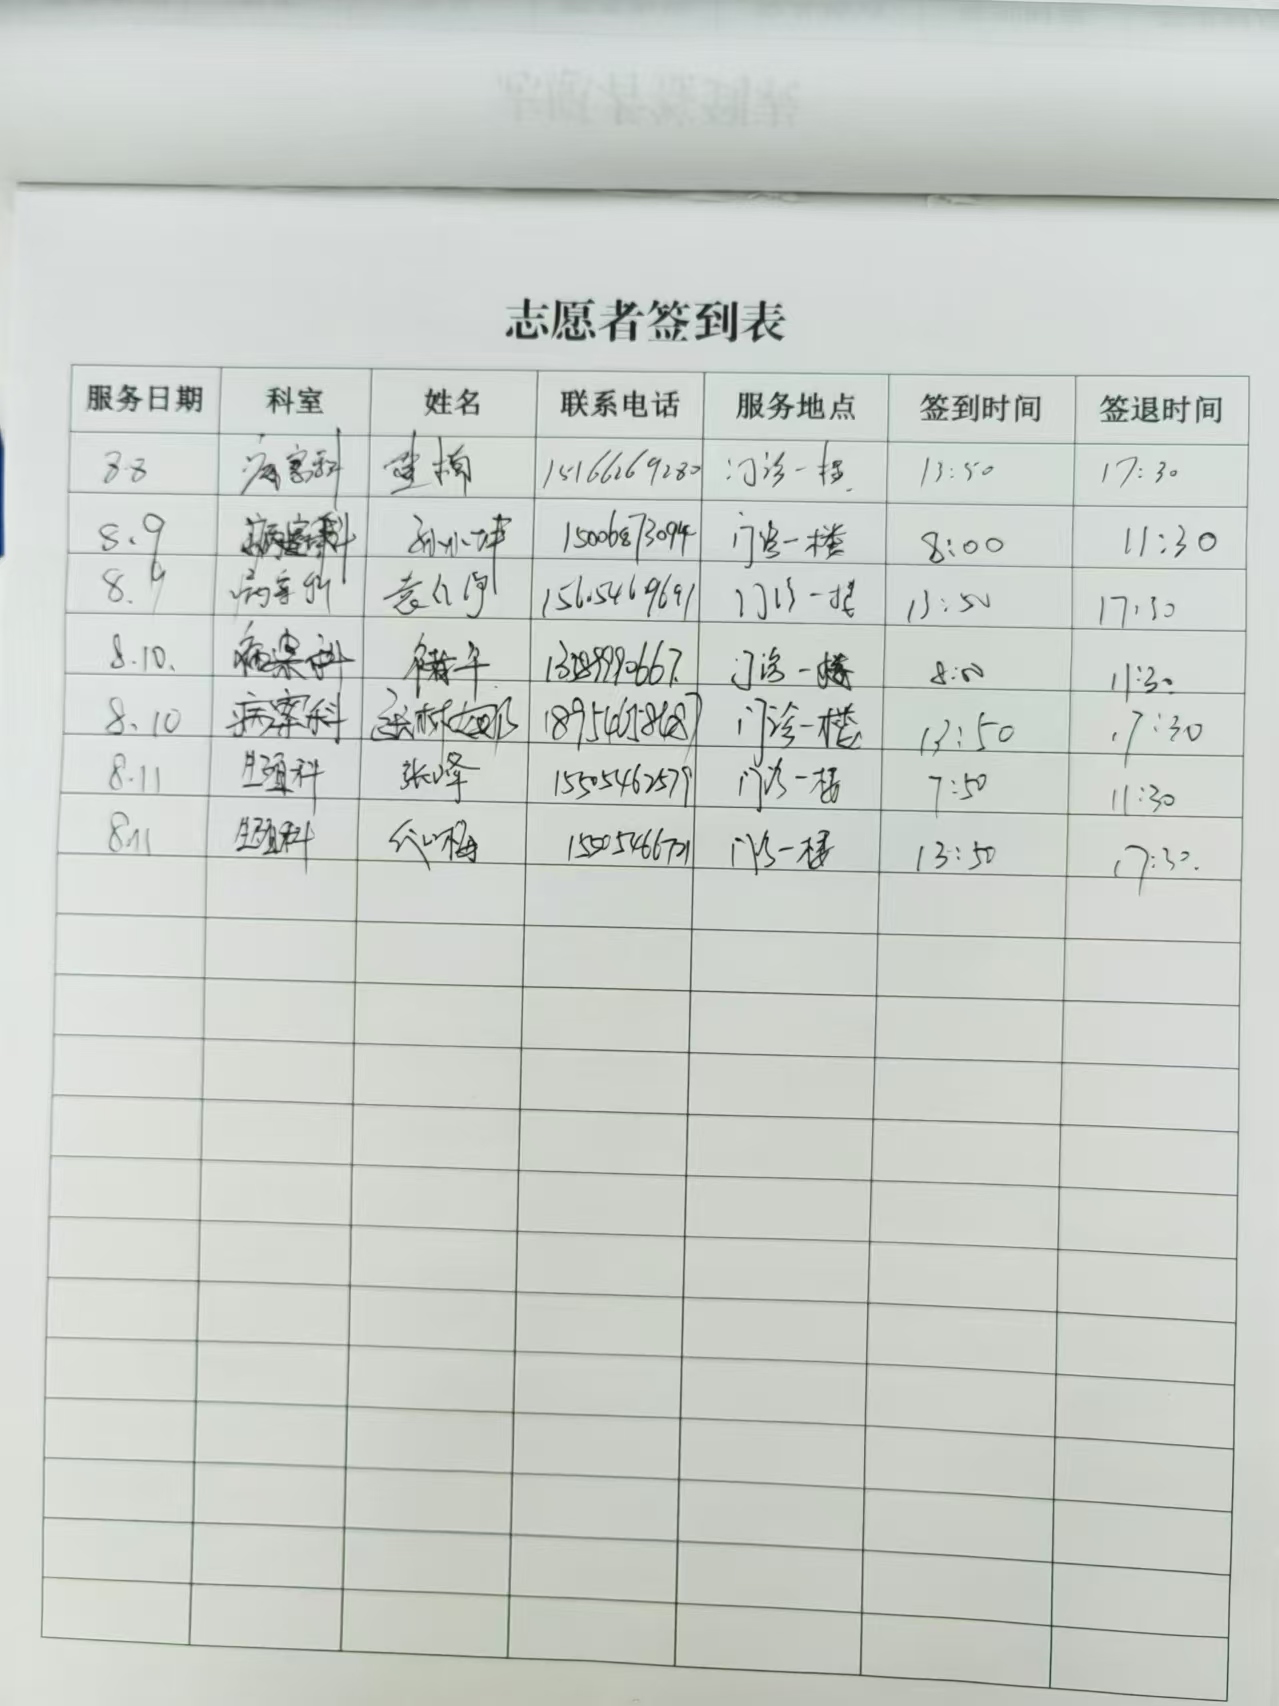 志愿者签到表
服务日期 科室 姓名 联系电话 服务地点 签到时间 签退时间
8.8 病案科 楠 15166269280 门诊一楼 13:50 17:30
8.9 病案科 孙小坤 15006873094 门诊一楼 8:00 11:30
8.9 病案科 袁 门诊一楼 13:50 17:30
8.10. 病案科 门诊一楼 8:00 11:30
8.10 病案科 门诊一楼 13:50 17:30
8.11 科 张峰 15505462579 门诊一楼 7:50 11:30
8.11 科 梅 门诊一楼 13:50 17:30.